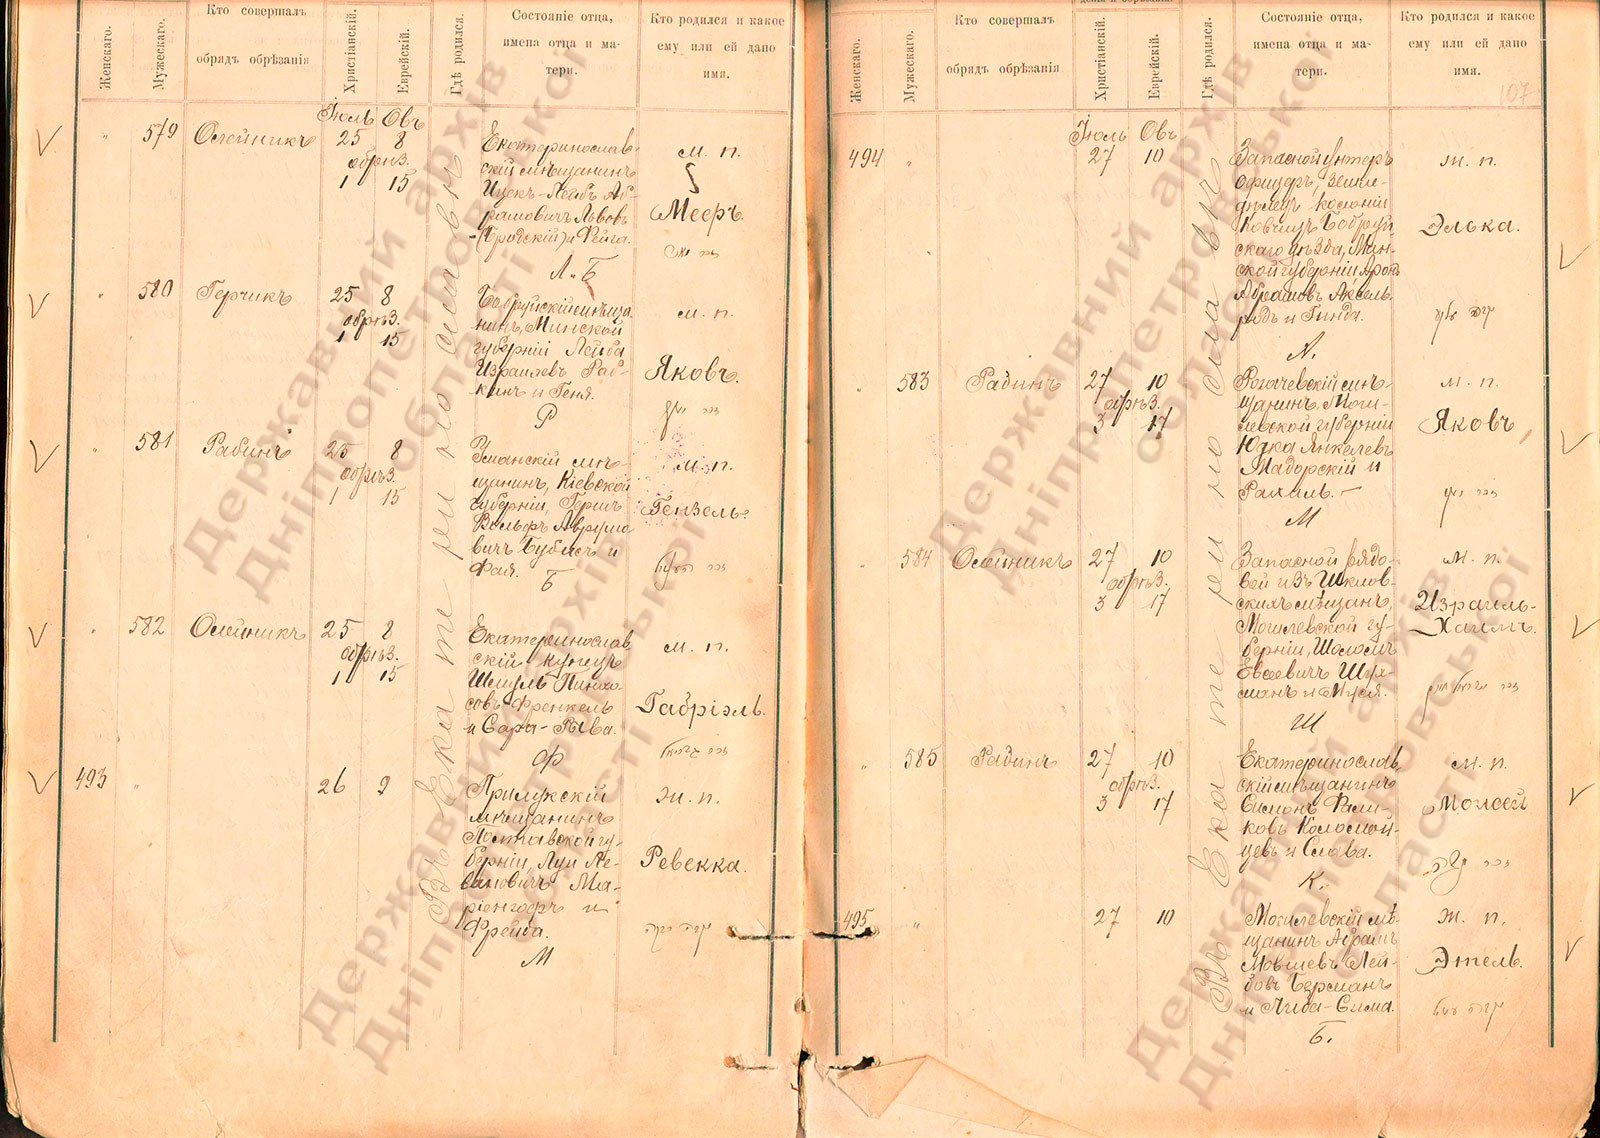 Женскаго.
Мужескаго.
Кто совершалъ
обрядъ обрѣзанія
Христіанскій.
Еврейскій.
Гдѣ родился.
Состояніе отца,
имена отца и ма-
тери.
Кто родился и какое
ему или ей дано
имя.
Іюль Овъ
579 Олейникъ 25 8
обрѣз.
1 15
Екатеринослав-
скій мѣщанинъ
Ицек-Лейбъ Аб-
рамовичъ Львовъ
(Бродскій) и Фейга.
Л. Б
м. п.
Мееръ.
580 Герчикъ 25 8
обрѣз.
1 15
Бобруйскій мѣща-
нинъ, Минской
губерніи Лейба
Израилевъ Раб-
кинъ и Геня.
Р
м. п.
Яковъ.
581 Рабинъ 25 8
обрѣз.
1 15
Уманскій мѣ-
щанинъ, Кіевской
губерніи, Герш
Вольфъ Аврумо-
вичъ Бубис и
Фая.
Б
м. п.
Гензель.
582 Олейникъ 25 8
обрѣз.
1 15
Екатеринослав
скій купецъ
Шмуль Пинхо-
совъ Френкель
и Сара-Рыва.
Ф
м. п.
Габріэль.
493 26 9
Прилукскій
мѣщанинъ
Полтавской гу-
берніи, Луи Ле-
вановичъ Ма-
ріенгофъ и
Фрейда.
М
ж. п.
Ревекка.
Въ Екатеринославѣ
Женскаго.
Мужескаго.
Кто совершалъ
обрядъ обрѣзанія
Христіанскій.
Еврейскій.
Гдѣ родился.
Состояніе отца,
имена отца и ма-
тери.
Кто родился и какое
ему или ей дано
имя.
107
Іюль Овъ
494 27 10
Запасной унтеръ
офицеръ, Земле-
дѣлецъ колоніи
Ковчицъ Бобруй
скаго уѣзда, Мин-
ской губерніи Аронъ
Абрамовъ Аксель-
родъ и Гинда.
А.
ж. п.
Элька.
583 Радинъ 27 10
обрѣз.
3 17
Рогачевскій мѣ-
щанинъ, Моги-
левской губерніи
Юдка Янкелевъ
Мадорскій и
Рахиль.
М
м. п.
Яковъ,
584 Олейникъ 27 10
обрѣз.
3 17
Запасной рядо-
вой изъ Шклов-
скихъ мѣщанъ,
Могилевской гу-
берніи, Шолом
Евсеевичъ Шул-
манъ и Муся.
Ш
м. п.
Израиль-
Хаимъ.
585 Радинъ 27 10
обрѣз.
3 17
Екатеринослав
скій мѣщанинъ
Симонъ Фали-
ковъ Коломой-
цевъ и Слава.
К.
м. п.
Моисей
495 27 10
Могилевскій мѣ-
щанинъ Абрамъ
Мовшевъ Лей-
бовъ Берманъ
и Либа-Сима.
Б.
ж. п.
Этель.
Въ Екатеринославѣ
Державний архів
Дніпропетровської
області